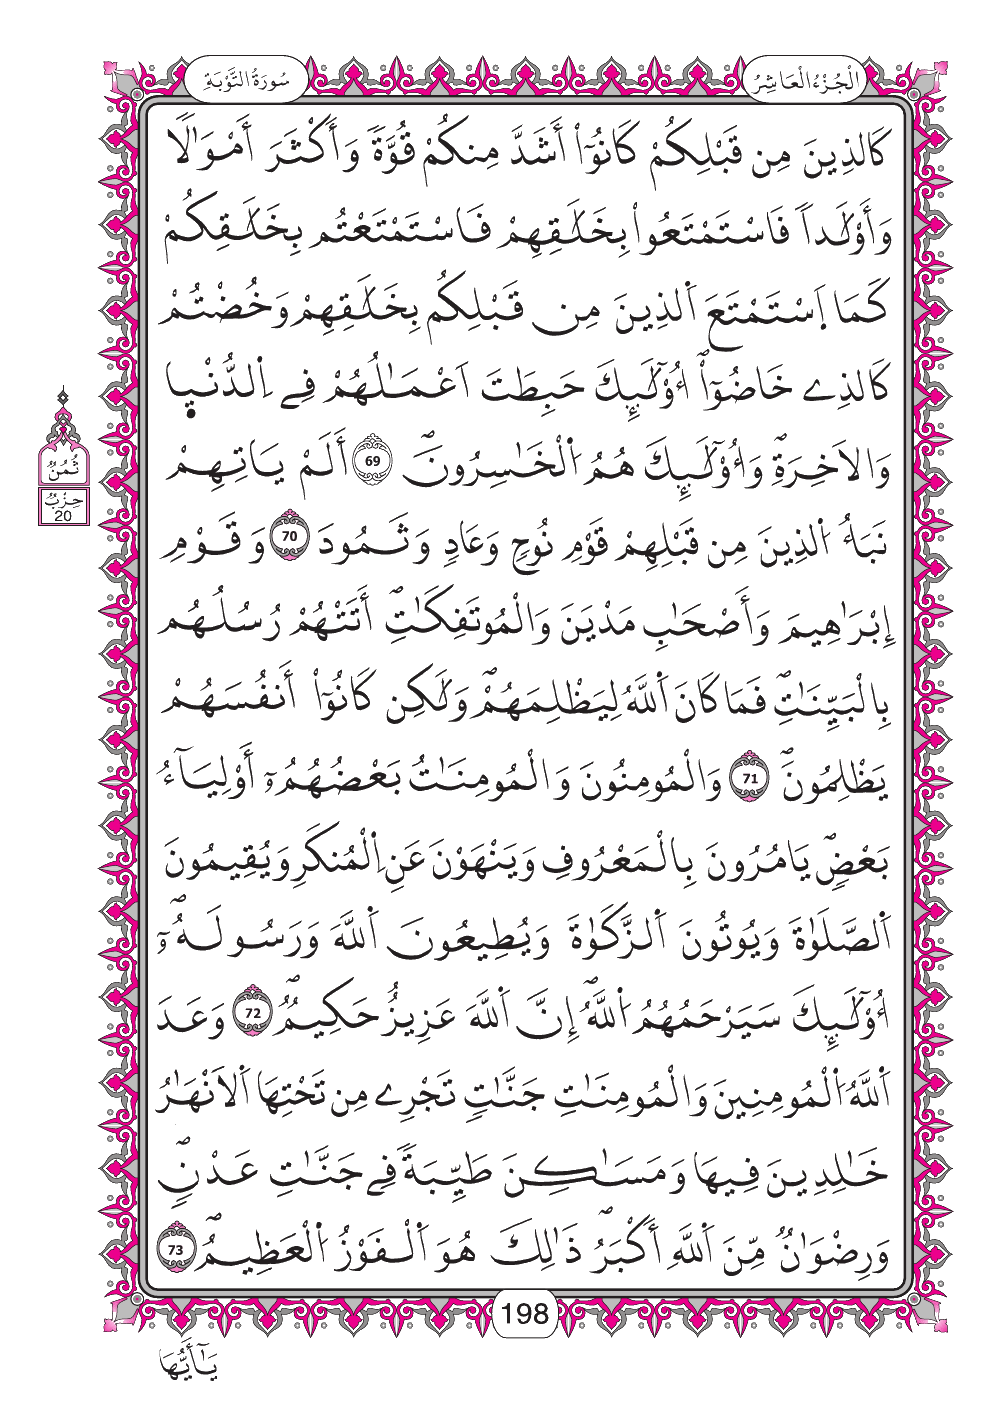 الْجُزْءُ الْعَاشِرُ
سُورَةُ التَّوْبَةِ
كَالذِينَ مِن قَبْلِكُمْ كَانُوٓاْ أَشَدَّ مِنكُمْ قُوَّةٗ وَأَكْثَرَ أَمْوَٰلٗا
وَأَوْلَٰداٗ فَاسْتَمْتَعُواْ بِخَلَٰقِهِمْ فَاسْتَمْتَعْتُم بِخَلَٰقِكُمْ
كَمَا اَ۪سْتَمْتَعَ اَ۬لذِينَ مِن قَبْلِكُم بِخَلَٰقِهِمْ وَخُضْتُمْ
كَالذِے خَاضُوٓاْۖ أُوْلَٰٓئِكَ حَبِطَتَ اَعْمَٰلُهُمْ فِے اِ۬لدُّنْي۪ا
وَالَاخِرَةِۖ وَأُوْلَٰٓئِكَ هُمُ اُ۬لْخَٰسِرُونَۖ 69 أَلَمْ يَاتِهِمْ
نَبَأُ اُ۬لذِينَ مِن قَبْلِهِمْ قَوْمِ نُوحٖ وَعَادٖ وَثَمُودَ 70 وَقَوْمِ
إِبْرَٰهِيمَ وَأَصْحَٰبِ مَدْيَنَ وَالْمُوتَفِكَٰتِۖ أَتَتْهُمْ رُسُلُهُم
بِالْبَيِّنَٰتِۖ فَمَا كَانَ اَ۬للَّهُ لِيَظْلِمَهُمْۖ وَلَٰكِن كَانُوٓاْ أَنفُسَهُمْ
يَظْلِمُونَۖ 71 وَالْمُومِنُونَ وَالْمُومِنَٰتُ بَعْضُهُمُۥٓ أَوْلِيَآءُ
بَعْضٖۖ يَامُرُونَ بِالْمَعْرُوفِ وَيَنْهَوْنَ عَنِ اِ۬لْمُنكَرِ وَيُقِيمُونَ
اَ۬لصَّلَوٰةَ وَيُوتُونَ اَ۬لزَّكَوٰةَ وَيُطِيعُونَ اَ۬للَّهَ وَرَسُولَهُۥٓۖ
أُوْلَٰٓئِكَ سَيَرْحَمُهُمُ اُ۬للَّهُۖ إِنَّ اَ۬للَّهَ عَزِيزٌ حَكِيمٞۖ 72 وَعَدَ
اَ۬للَّهُ اُ۬لْمُومِنِينَ وَالْمُومِنَٰتِ جَنَّٰتٖ تَجْرِے مِن تَحْتِهَا اَ۬لَانْهَٰرُ
خَٰلِدِينَ فِيهَا وَمَسَٰكِنَ طَيِّبَةٗ فِے جَنَّٰتِ عَدْنٖۖ
وَرِضْوَٰنٞ مِّنَ اَ۬للَّهِ أَكْبَرُۖ ذَٰلِكَ هُوَ اَ۬لْفَوْزُ اُ۬لْعَظِيمُۖ 73
ثُمُنٌ
حِزْبٌ
20
198
يَٰٓأَيُّهَا